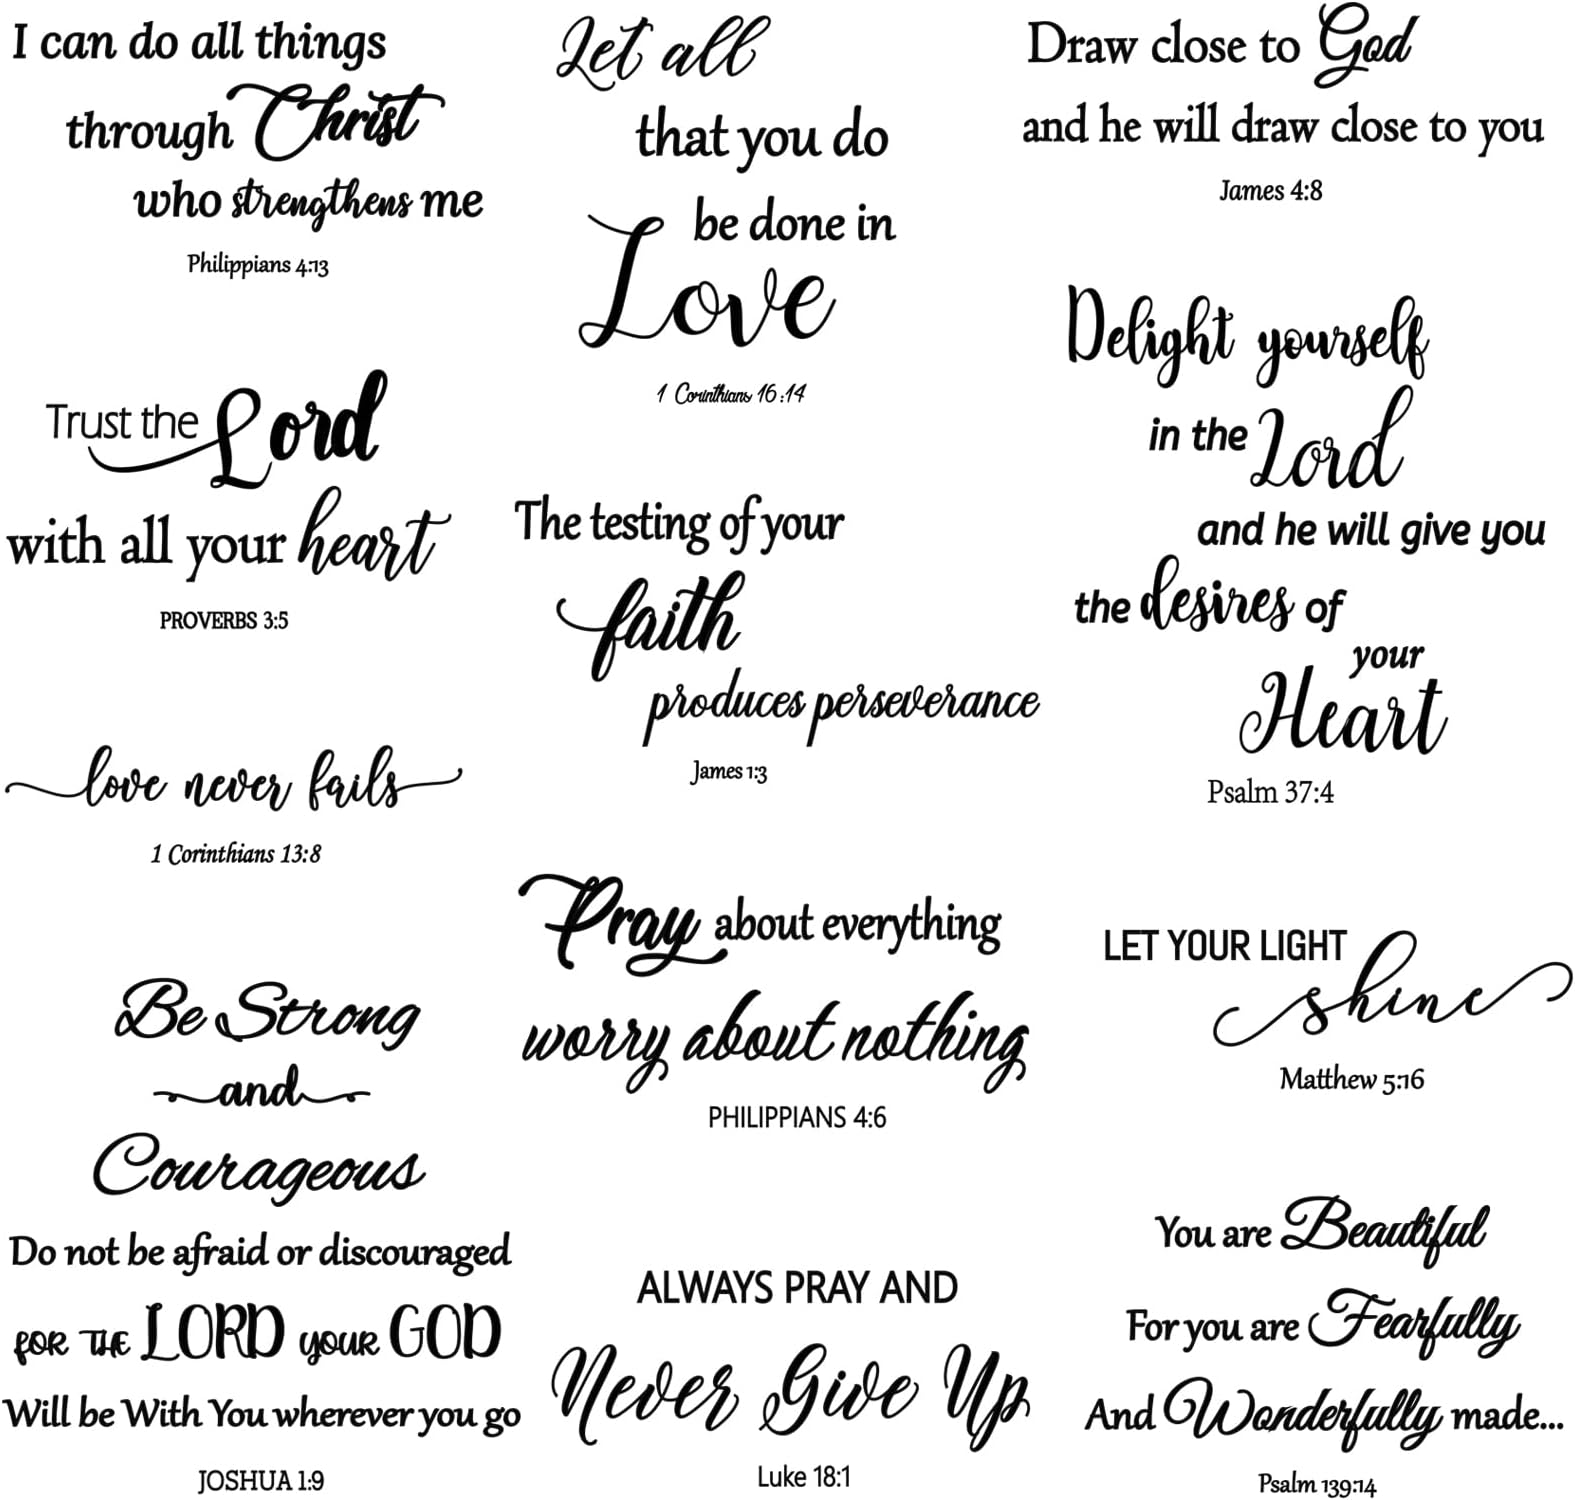 I can do all things
through Christ
who strengthens me
Philippians 4:13
Trust the Lord
with all your heart
PROVERBS 3:5
love never fails
1 Corinthians 13:8
Be Strong
and
Courageous
Do not be afraid or discouraged
FOR THE LORD your GOD
Will be With You wherever you go
JOSHUA 1:9
Let all
that you do
be done in
Love
1 Corinthians 16:14
The testing of your
faith
produces perseverance
James 1:3
Pray about everything
worry about nothing
PHILIPPIANS 4:6
ALWAYS PRAY AND
Never Give Up
Luke 18:1
Draw close to God
and he will draw close to you
James 4:8
Delight yourself
in the Lord
and he will give you
the desires of
your
Heart
Psalm 37:4
LET YOUR LIGHT
shine
Matthew 5:16
You are Beautiful
For you are Fearfully
And Wonderfully made...
Psalm 139:14